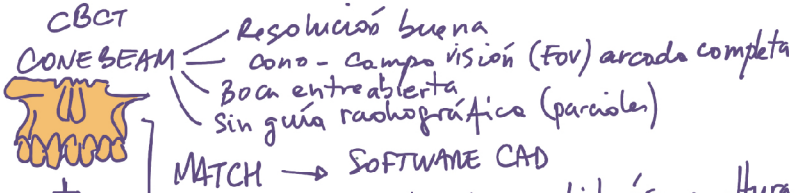 CBCT
CONEBEAM
Resolución buena
cono - campo visión (FOV) arcada completa
Boca entreabierta
Sin guía radiográfica (parciales)
MATCH → SOFTWARE CAD